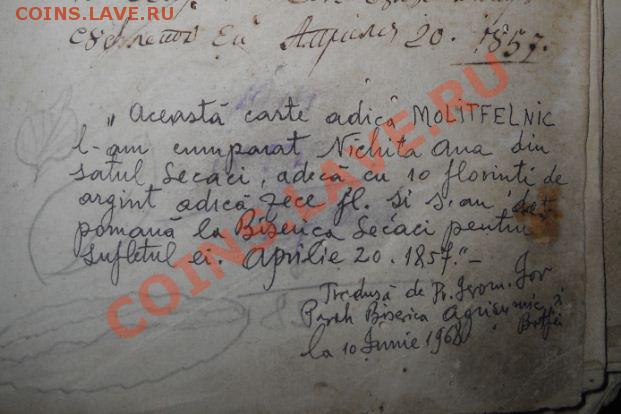 COINS.LAVE.RU
Априлїя 20. 1857.
„Această carte adică MOLITFELNIC
l-am cumparat Nichita Ana din
satul Secaci, adecă cu 10 florinti de
argint adică zece fl. si s'au dat
pomană la Biserica Secaci pentru
sufletul ei. Aprilie 20. 1857."-
Tradusă de Pr. Ierom.
Paroh Biserica
la 10 Iunie 1968
COINS.LAVE.RU